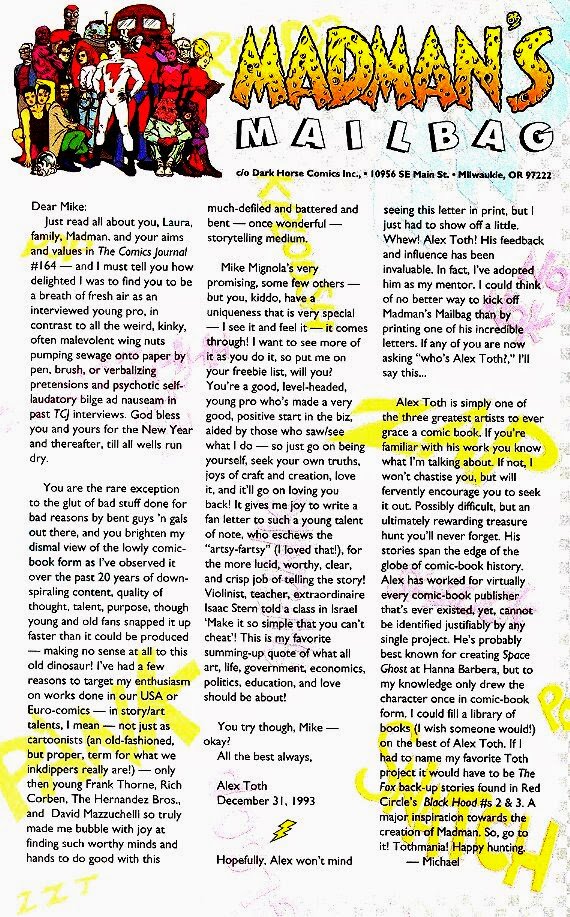 MADMAN'S
MAILBAG
c/o Dark Horse Comics Inc., • 10956 SE Main St. • Milwaukie, OR 97222
Dear Mike:
Just read all about you, Laura,
family, Madman, and your aims
and values in The Comics Journal
#164 — and I must tell you how
delighted I was to find you to be
a breath of fresh air as an
interviewed young pro, in
contrast to all the weird, kinky,
often malevolent wing nuts
pumping sewage onto paper by
pen, brush, or verbalizing
pretensions and psychotic self-
laudatory bilge ad nauseam in
past TCJ interviews. God bless
you and yours for the New Year
and thereafter, till all wells run
dry.
You are the rare exception
to the glut of bad stuff done for
bad reasons by bent guys 'n gals
out there, and you brighten my
dismal view of the lowly comic-
book form as I've observed it
over the past 20 years of down-
spiraling content, quality of
thought, talent, purpose, though
young and old fans snapped it up
faster than it could be produced
— making no sense at all to this
old dinosaur! I've had a few
reasons to target my enthusiasm
on works done in our USA or
Euro-comics — in story/art
talents, I mean — not just as
cartoonists (an old-fashioned,
but proper, term for what we
inkdippers really are!) — only
then young Frank Thorne, Rich
Corben, The Hernandez Bros.,
and David Mazzuchelli so truly
made me bubble with joy at
finding such worthy minds and
hands to do good with this
much-defiled and battered and
bent — once wonderful —
storytelling medium.
Mike Mignola's very
promising, some few others —
but you, kiddo, have a
uniqueness that is very special
— I see it and feel it — it comes
through! I want to see more of
it as you do it, so put me on
your freebie list, will you?
You're a good, level-headed,
young pro who's made a very
good, positive start in the biz,
aided by those who saw/see
what I do — so just go on being
yourself, seek your own truths,
joys of craft and creation, love
it, and it'll go on loving you
back! It gives me joy to write a
fan letter to such a young talent
of note, who eschews the
"artsy-fartsy" (I loved that!), for
the more lucid, worthy, clear,
and crisp job of telling the story!
Violinist, teacher, extraordinaire
Isaac Stern told a class in Israel
'Make it so simple that you can't
cheat'! This is my favorite
summing-up quote of what all
art, life, government, economics,
politics, education, and love
should be about!
You try though, Mike —
okay?
All the best always,
Alex Toth
December 31, 1993
Hopefully, Alex won't mind
seeing this letter in print, but I
just had to show off a little.
Whew! Alex Toth! His feedback
and influence has been
invaluable. In fact, I've adopted
him as my mentor. I could think
of no better way to kick off
Madman's Mailbag than by
printing one of his incredible
letters. If any of you are now
asking "who's Alex Toth?," I'll
say this...
Alex Toth is simply one of
the three greatest artists to ever
grace a comic book. If you're
familiar with his work you know
what I'm talking about. If not, I
won't chastise you, but will
fervently encourage you to seek
it out. Possibly difficult, but an
ultimately rewarding treasure
hunt you'll never forget. His
stories span the edge of the
globe of comic-book history.
Alex has worked for virtually
every comic-book publisher
that's ever existed, yet, cannot
be identified justifiably by any
single project. He's probably
best known for creating Space
Ghost at Hanna Barbera, but to
my knowledge only drew the
character once in comic-book
form. I could fill a library of
books (I wish someone would!)
on the best of Alex Toth. If I
had to name my favorite Toth
project it would have to be The
Fox back-up stories found in Red
Circle's Black Hood #s 2 & 3. A
major inspiration towards the
creation of Madman. So, go to
it! Tothmania! Happy hunting.
— Michael
ZZT